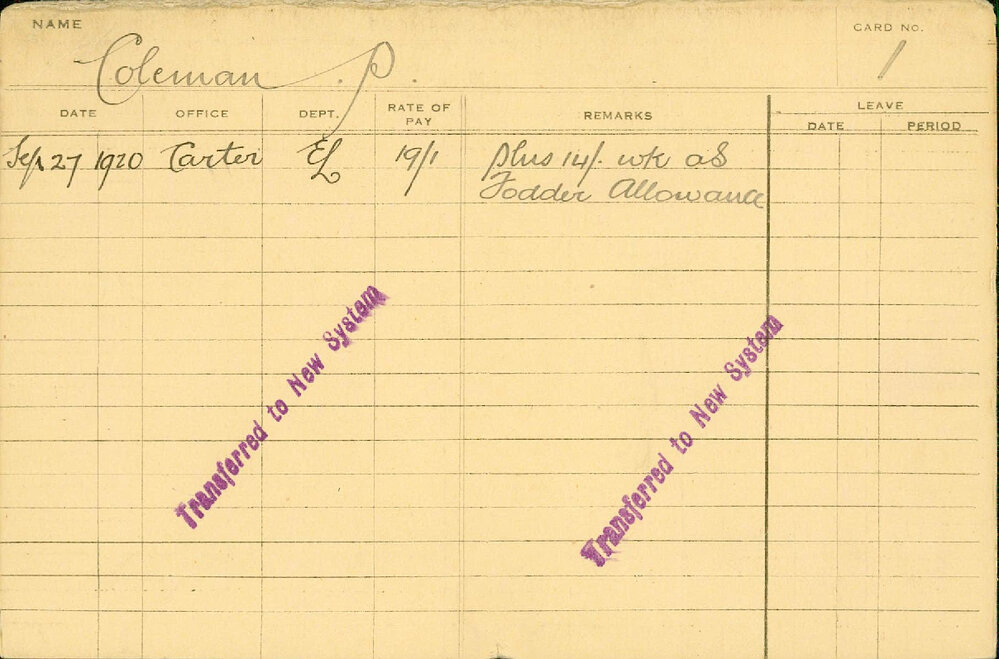 NAME
CARD NO.
Coleman . P.
1
DATE OFFICE DEPT. RATE OF PAY REMARKS LEAVE
DATE PERIOD
Sep 27 1920 Carter EL 19/1 plus 14/- wk as
Fodder Allowance
Transferred to New System
Transferred to New System